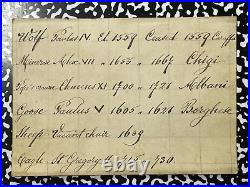 Wolf Paulus IV. El. 1559 Ceased 1559 Caraffa
Minerva Alex VII " 1655 " 1667 Chigi
Clemens XI 1700 " 1721 Albani
Goose Paulus V " 1605 " 1621 Borghese
Sheep Vacant chair 1689
Eagle St Gregory 730.